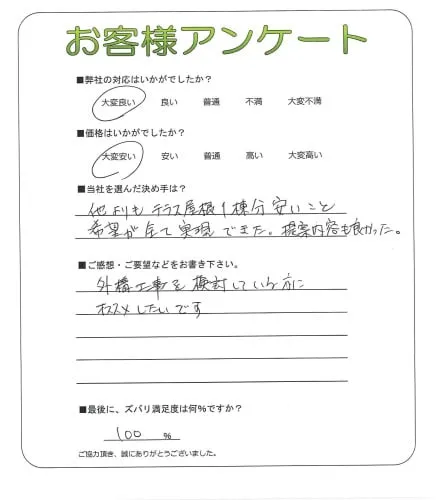 お客様アンケート
■弊社の対応はいかがでしたか？
大変良い 良い 普通 不満 大変不満
■価格はいかがでしたか？
大変安い 安い 普通 高い 大変高い
■当社を選んだ決め手は？
他よりも テラス屋根1棟分安いこと
希望が全て実現できた。提案内容も良かった。
■ご感想・ご要望などをお書き下さい。
外構工事を検討している方に
オススメしたいです
■最後に、ズバリ満足度は何％ですか？
100 ％
ご協力頂き、誠にありがとうございました。